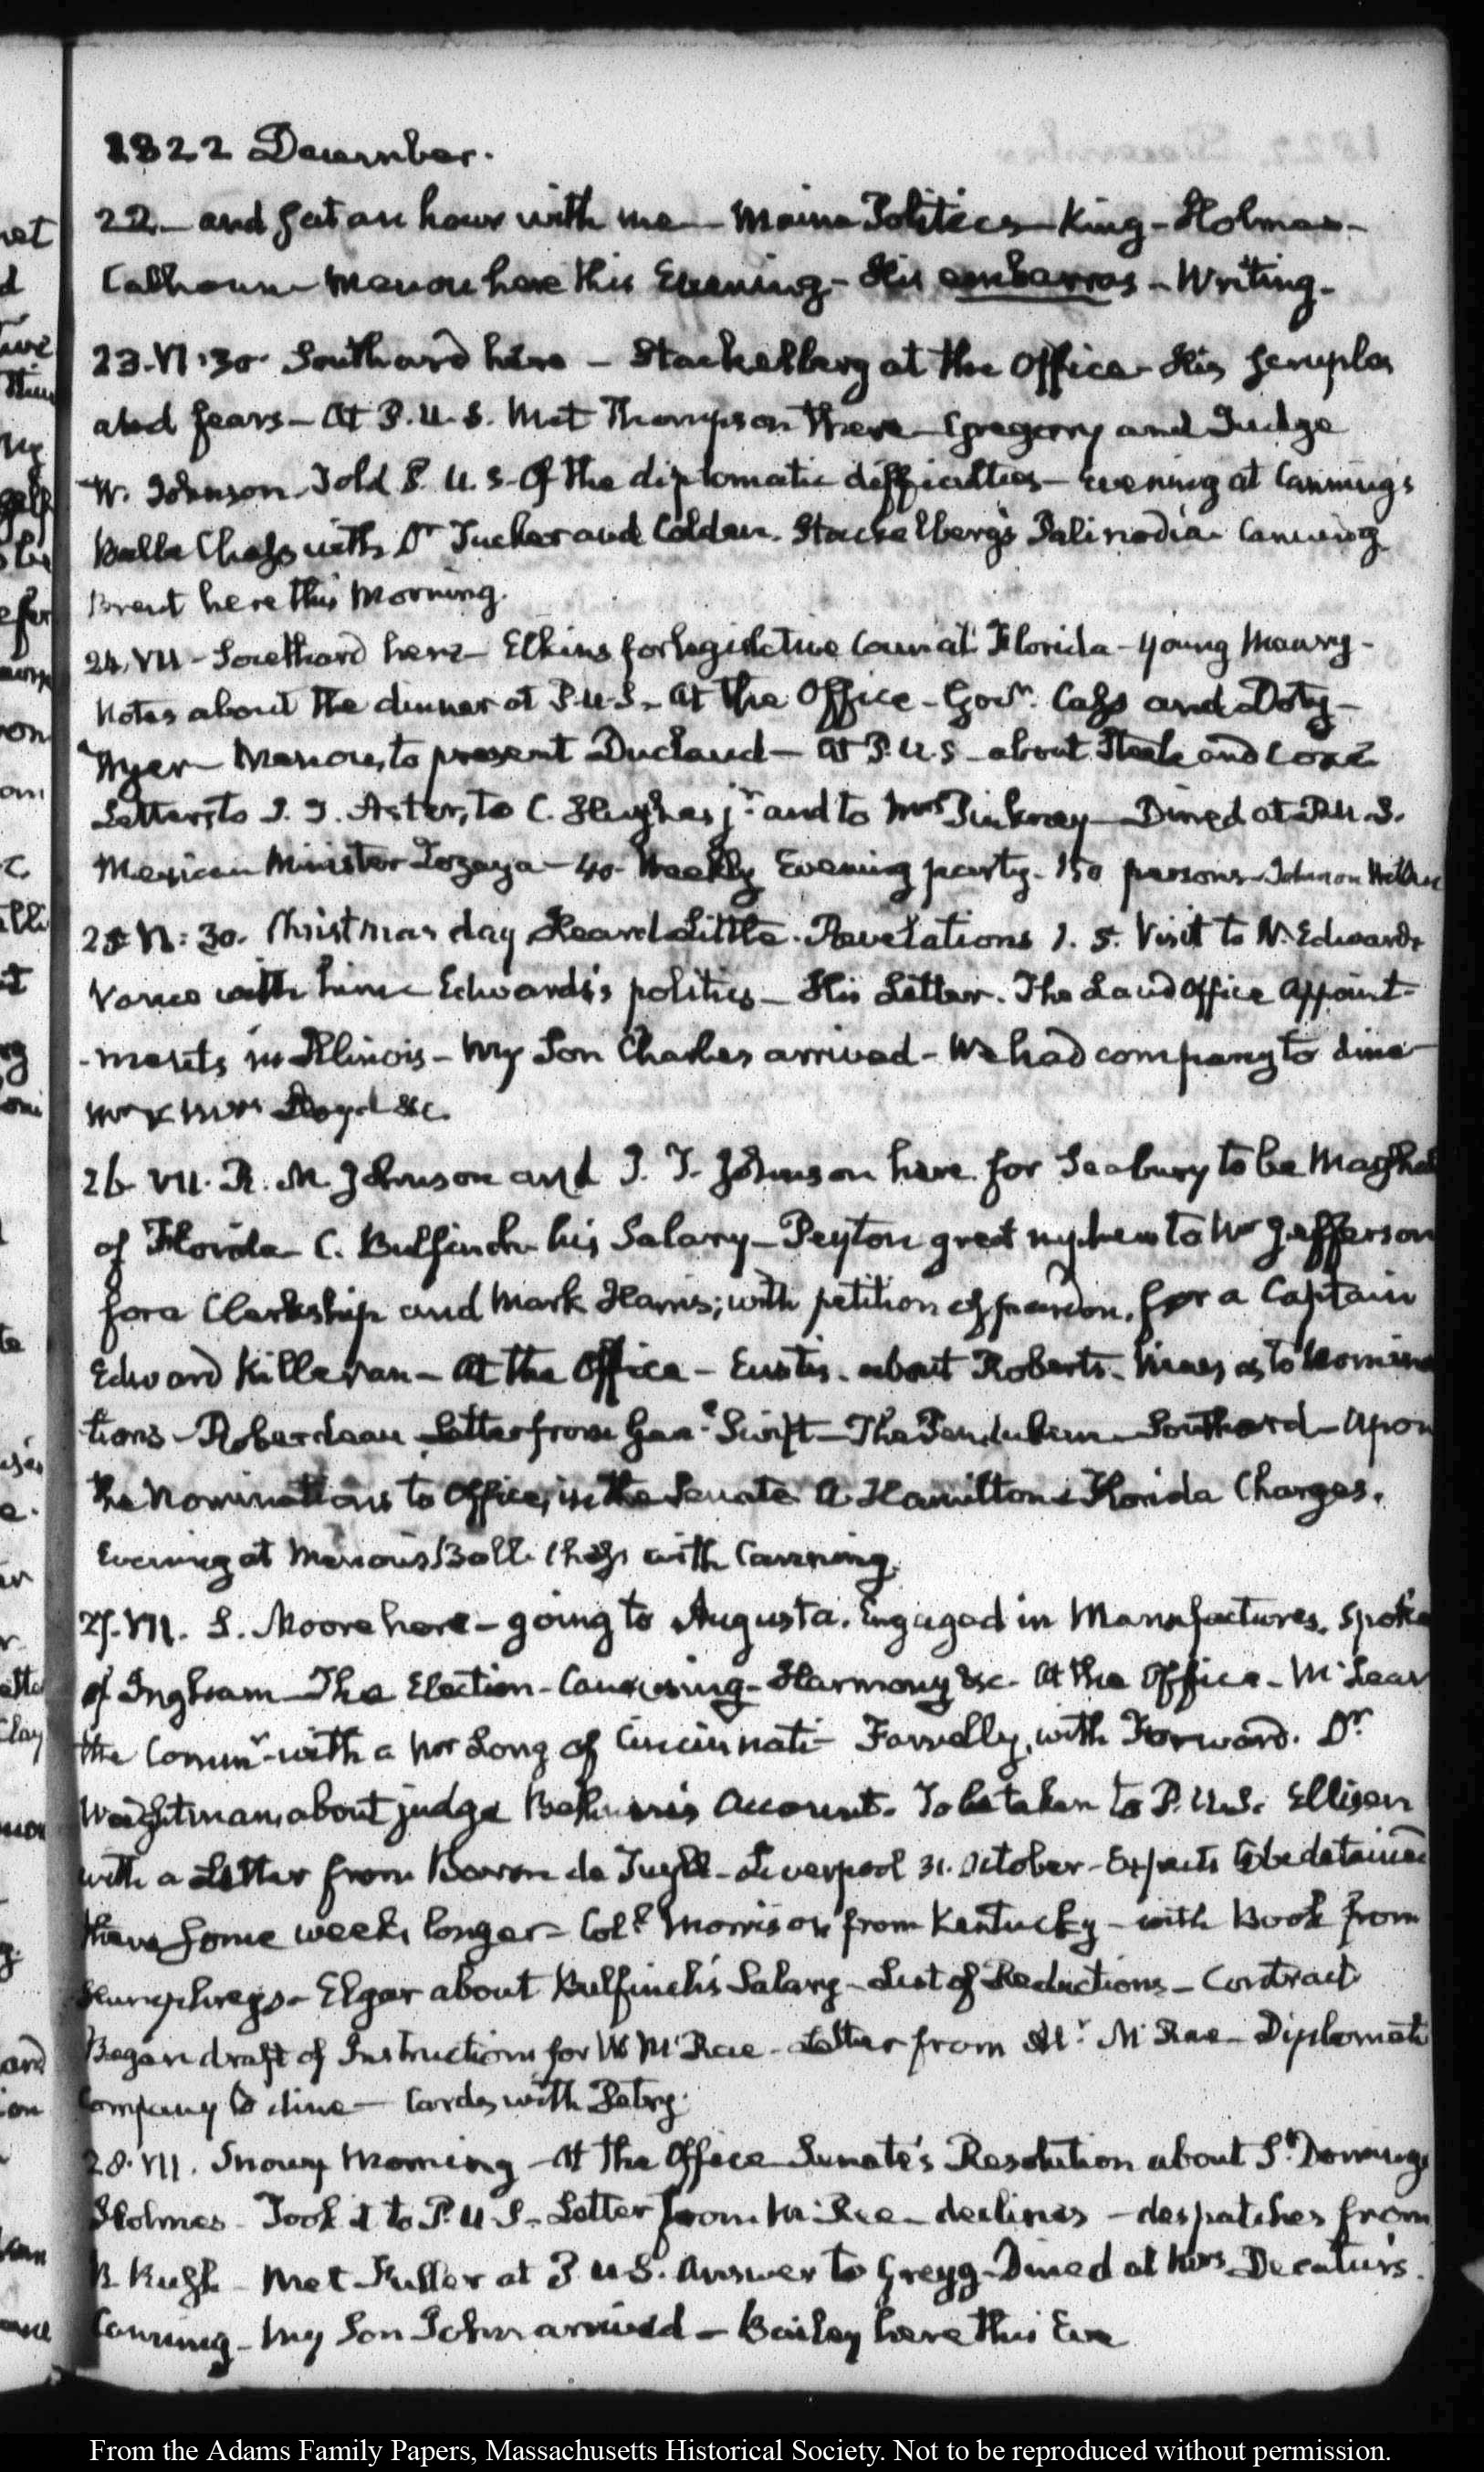 1822 December.
22. – and sat an hour with me – Maine Politics – King – Holmes –
Calhoun – Menou here this Evening – His embarras – Writing –
23. VI:30. Southard here – Stackelberg at the Office – His scruples
and fears – At P.U.S. Met Thompson there – Gregory and Judge
W. Johnson. Told P.U.S. of the diplomatic difficulties – Evening at Canning's
Ball Chess with Dr Tucker and Colden. Stackelberg's Palinodia Canning
Brent here this Morning.
24. VII – Southard here – Elkins for legislative Council Florida – Young Maury –
Notes about the dinner at P.U.S. – At the Office – Govr. Cass and Doty –
Myer – Menou, to present Duclaud – At P.U.S. – about Steele and Coxe
Letters to J. J. Astor, to C. Hughes jr and to Mrs Pinkney – Dined at P.U.S.
Mexican Minister Zozaya – 40. Weekly Evening party. 150 persons – Johnson
25 VI:30. Christmas day Heard Little. Revelations 1. 5. Visit to N. Edwards
Vance with him – Edwards's politics – His Letter. The Land Office Appoint-
-ments in Illinois – My Son Charles arrived – We had company to dine –
Mr & Mrs Lloyd &c.
26 VII. R. M. Johnson and J. T. Johnson here for Seabury to be Marshal
of Florida – C. Bulfinch his Salary – Peyton great nephew to Mr Jefferson
for a Clerkship and Mark Harris; with petition of pardon, for a Captain
Edward Killeran – At the Office – Eustis. about Roberts. as to Nomina
tions – Roberdeau Letter from Genl. Swift – The Pendulum – Southard – Upon
the Nominations to Office, in the Senate A. Hamilton & Florida Charges.
Evening at Menou's Ball. Chess with Canning.
27. VII. S. Moore here – going to Augusta. Engaged in Manufactures. Spoke
of Ingham – The Election – Caucusing – Harmony &c. At the Office – McLean
the Commr. – with a Mr Long of Cincinnati – Farrelly, with Forward. Dr
Weightman, about judge Account. To be taken to P.U.S. Ellisen
with a Letter from Baron de Tuyll – Liverpool 31. October – Expects to be detained
there some weeks longer – Coll. Morrison from Kentucky – with Book from
Humphreys – Elgar about Bulfinch's Salary – List of Reductions – Contract
Began draft of Instructions for W McRae – Letter from Al: McRae – Diplomatic
Company to dine – Cards with Petry.
28. VII. Snowy Morning – At the Office – Senate's Resolution about St. Domingo
Holmes – Took it to P.U.S. – Letter from McRae – declines – despatches from
R. Rush – Met Fuller at P.U.S. Answer to Gregg – Dined at Mrs Decatur's.
Canning – My Son John arrived – Bailey here this Eve
From the Adams Family Papers, Massachusetts Historical Society. Not to be reproduced without permission.